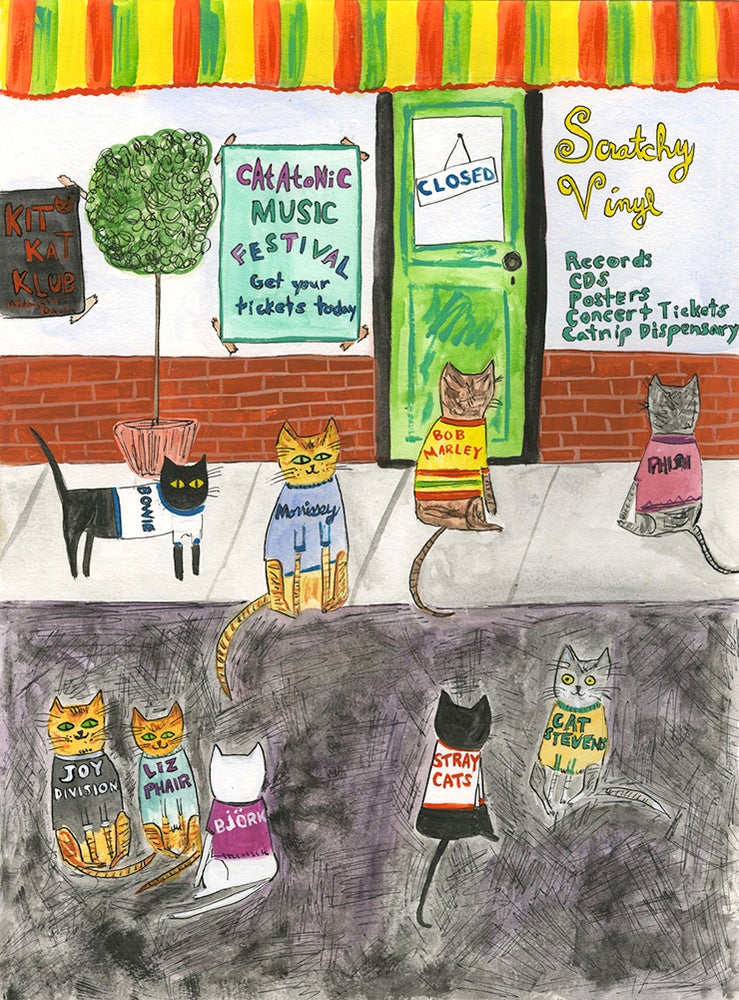 KIT
KAT
KLUB
CAtAtoNiC
MUSIC
FESTIVAL
Get your
tickets today
CLOSED
Scratchy
Vinyl
Records
CDS
Posters
Concert Tickets
Catnip Dispensary
BOWIE
Morrissey
BOB
MARLEY
PHISH
JOY
DIVISION
LIZ
PHAIR
BJÖRK
STRAY
CATS
CAT
STEVENS